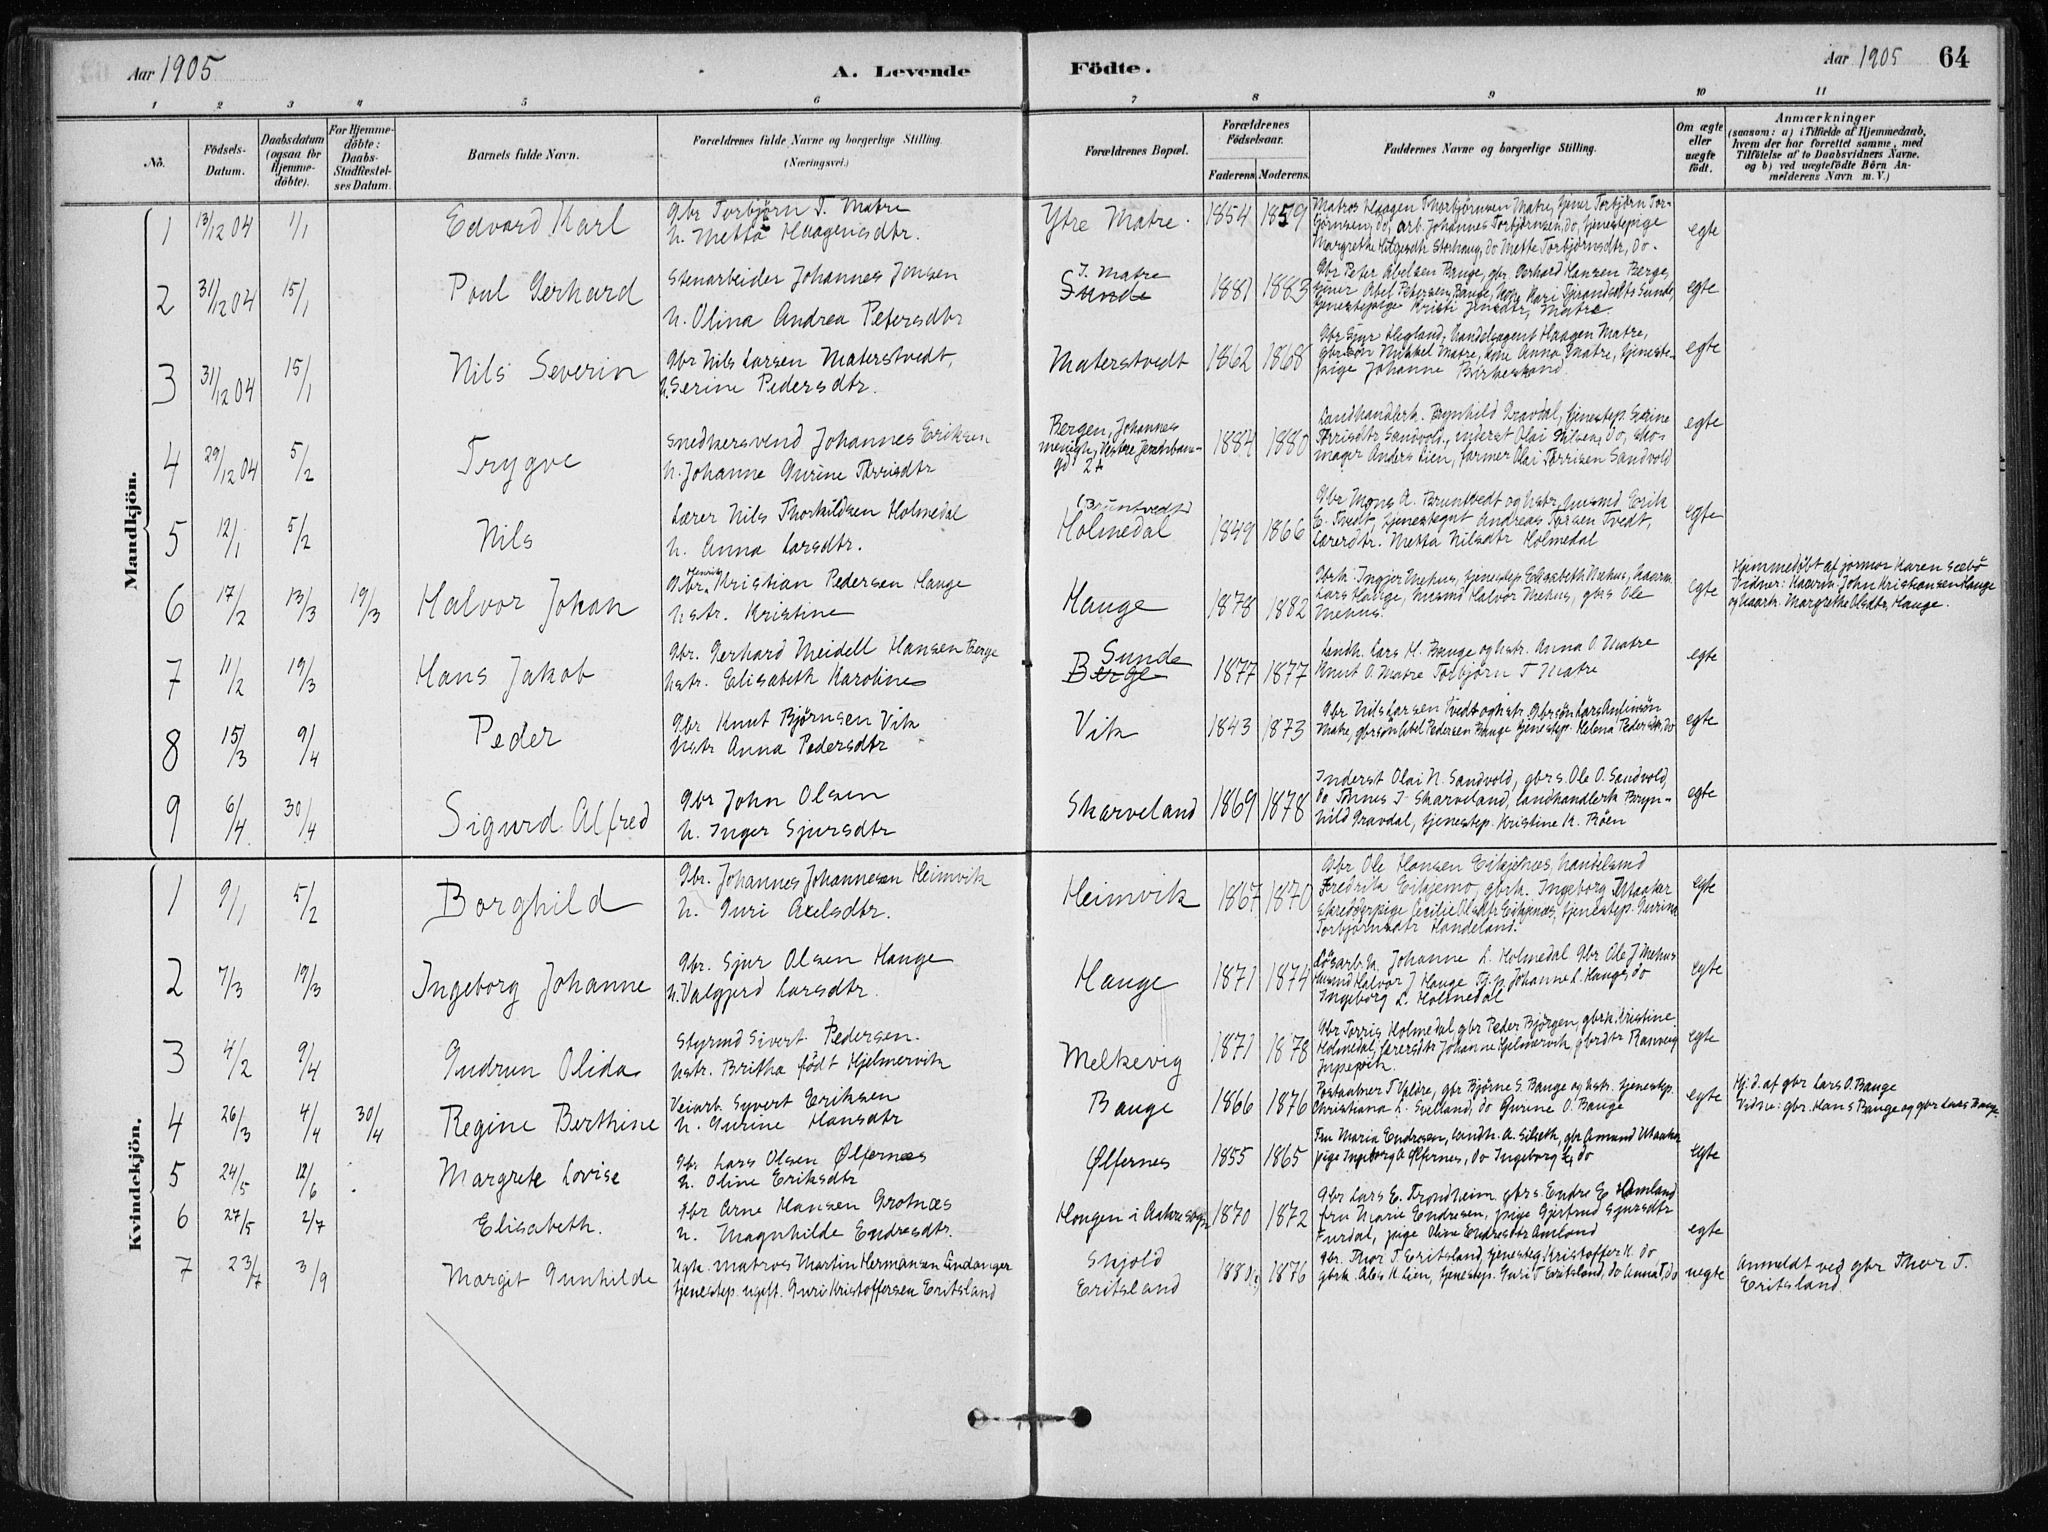 Aar 1905
A. Levende
Födte.
Aar 1905 64
1 2 3 4 5 6 7 8 9 10 11
No.
Födsels-
Datum.
Daabsdatum
(ogsaa for
Hjemme-
döbte).
For Hjemme-
döbte:
Daabs-
Stadfæstel-
ses Datum.
Barnets fulde Navn.
Forældrenes fulde Navne og borgerlige Stilling.
(Næringsvei.)
Forældrenes Bopæl.
Forældrenes
Födselsaar.
Faderens. Moderens.
Faddernes Navne og borgerlige Stilling.
Om ægte
eller
uægte
födt.
Anmærkninger
(saasom: a) i Tilfælde af Hjemmedaab,
hvem der har forrettet samme, med
Tilföielse af to Daabsvidners Navne.
b) ved uægtefödte Börn An-
melderens Navn m. V.)
Mandkjön.
1 13/12 04 1/1 Edvard Karl
Gbr Torbjörn T. Matre
h. Metta Haagensdtr.
Ytre Matre. 1854 1859
Matros Haagen Thorbjörnsen Matre, tjener Torbjörn Tor-
björnsen, do, arb. Johannes Torbjörnsen, do, tjenestepige
Margrethe Helgesdtr Storhaug, do Mette Torbjörnsdtr, do.
egte
2 31/12 04 15/1 Poul Gerhard
Stenarbeider Johannes Jonsen
h. Olina Andrea Petersdtr
I. Matre
Sunde
1881 1883
Gbr Peter Abelsen Bauge, gbr. Gerhard Hansen Berge,
tjener Abel Petersen Bauge, Kone Kari Sunde,
tjenestepige Kristi Jensdtr, Matre.
egte
3 31/12 04 15/1 Nils Severin
Gbr Nils Larsen Materstvedt,
h. Serine Pedersdtr.
Materstvedt 1862 1868
Gbr Sjur Hegland, Handelsagent Haagen Matre,
gbr.sön Mikkel Matre, Kone Anna Matre, tjeneste-
pige Johanne Birkeland.
egte
4 29/12 04 5/2 Trygve
Snedkersvend Johannes Eriksen
h. Johanne Gurine Tørrisdtr
Bergen, Johannes
menigh, Vestre
27
1884 1880
Landhandlerk. Brynhild Gravdal, tjenestep. Serine
Tørrisdtr, Sandvold, inderst Olai Nilsen, do, sko-
mager Anders Lien, farmer Olai Tørrisen Sandvold
egte
5 12/1 5/2 Nils
Lærer Nils Thorkildsen Holmedal
h. Anna Larsdtr.
(Bruntvedt)
Holmedal
1849 1866
Gbr Mons A. Bruntvedt og hstr, husmd Erik
E. Tvedt, tjenestegut Andreas Larsen Tvedt,
Lærerdtr. Metta Nilsdtr Holmedal
egte
6 17/2 13/3 19/3 Halvor Johan
Gbr. Henrik Kristian Pedersen Hauge
hstr. Kristine
Hauge 1878 1882
Gbrk. Ingjer Mehus, tjenestep. Elisabeth Mehus,
Lars Hauge, husmd Halvor Mehus, gbrs Ole
Mehus.
egte
Hjemmedöbt af jormor Karen Sæbö
Vidner: John Kristiansen Hauge
og Margrethe Olsdtr, Hauge.
7 11/2 19/3 Hans Jakob
Gbr. Gerhard Meidell Hansen Berge
hstr. Elisabeth Karoline
Sunde
Berge
1877 1877
Landh. Lars H. Bauge og hstr. Anna O. Matre
Knut O. Matre Torbjörn T Matre
egte
8 15/3 9/4 Peder
Gbr Knut Bjørnsen Vik
hstr Anna Pedersdtr
Vik 1843 1873
Gbr Nils Larsen Tvedt og hstr. Gbrsøn Lars
Matre, gbrsøn Abel Pedersen Bauge tjenestep. Helena Pedersdtr, do
egte
9 6/4 30/4 Sigurd Alfred
Gbr John Olsen
h. Inger Sjursdtr
Skarveland 1869 1878
Inderst Olai N. Sandvold, gbrs. Ole O. Sandvold,
do Tønnes J. Skarveland, landhandlerk Bryn-
hild Gravdal, tjenestep. Kristine K. Røen
egte
Kvindekjön.
1 9/1 5/2 Borghild
Gbr. Johannes Johannesen Heimvik
h. Guri Axelsdtr.
Heimvik 1867 1870
Gbr Ole Hansen Eikjenes, handelsmd
Fredrik Eikjemo, gbrk. Ingeborg Maaker
Skrædderpige Cecilie Olsdtr Eikjenæs, tjenestep. Gurina
Torbjørnsdtr Handeland.
egte
2 7/3 19/3 Ingeborg Johanne
Gbr. Sjur Olsen Hauge
h. Valgjerd Larsdtr.
Hauge 1871 1874
Løsarb.k. Johanne L. Holmedal Gbr Ole J Mehus
husmd Halvor J Hauge Tj.p. Johanne L. Hauge, do
Ingeborg L. Holmedal
egte
3 4/2 9/4 Gudrun Olida
Styrmd Sivert Pedersen.
hstr. Britha født Hjelmervik
Melkevig 1871 1878
Gbr Tørris Holmedal gbr Peder Bjørgen, gbrk. Kristine
Holmedal, lærersdtr Johanne Hjelmervik gbrdtr Ranveig
egte
4 26/3 4/4 30/4 Regine Berthine
Veiarb. Syvert Eriksen
h. Gurine Hansdtr
Bauge 1866 1876
Postaabner T Valdre, gbr Bjørne S. Bauge og hstr. tjenestep.
Christiana L. Svelland, do Gurine O. Bauge
egte
Hj.d. af gbr Lars O. Bauge
Vidne: gbr. Hans Bauge og gbr Lars Bauge
5 24/5 12/6 Margrete Lovise
Gbr Lars Olsen Ølfernæs
h. Oline Eriksdtr
Ølfernes 1855 1865
Fru Maria Endresen, landh. A. Silseth, gbr Amund Maaker
pige Ingeborg A Ølfernes, do Ingeborg do
egte
6 27/5 2/7 Elisabeth.
Gbr Arne Hansen Grotnæs
h. Magnhilde Endresdtr.
Haugen i Aakre 1870 1872
Gbr Lars E. Trondheim gbrs. Endre E Amland
fru Marie Endresen, pige Gjertrud Sjursdtr
Furdal, pige Oline Endresdtr Amland
egte
7 23/7 3/9 Margit Gunhilde
Ugk. matros Martin Hermansen Lindanger
tjenestep. ugift. Guri Kristoffersen Eritsland
Skjold
Eritsland
1880, 1876
gbr. Thor T. Eritsland, tjenesteg. Kristoffer K. do
gbrk. Ales K Lien, tjenestep. Guri T Eritsland, do Anna T, do
uegte
Anmeldt ved gbr Thor T.
Eritsland.